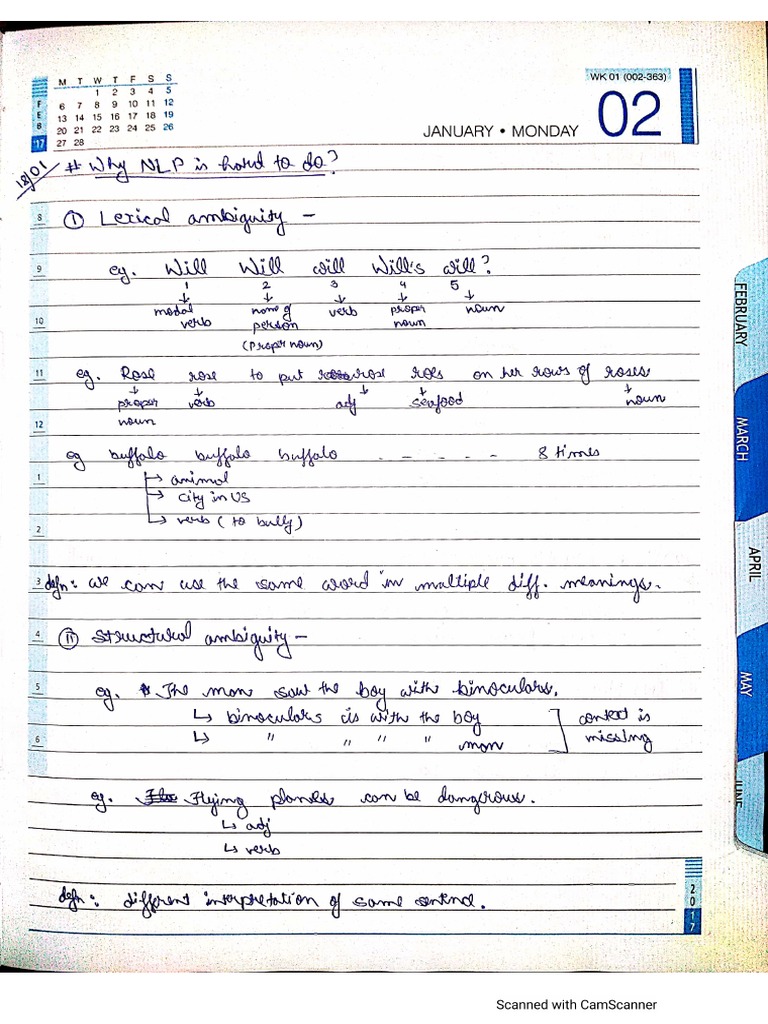 M T W T F S S
1 2 3 4 5
6 7 8 9 10 11 12
13 14 15 16 17 18 19
20 21 22 23 24 25 26
27 28
FEB 17
WK 01 (002-363)
JANUARY • MONDAY 02
18/01
# Why NLP is hard to do?
8 ① Lexical ambiguity –
9 eg. Will Will will Will's will?
1 2 3 4 5
10 modal verb name of person (Proper noun) verb proper noun noun
11 eg. Rose rose to put rose roes on her rows of roses
proper noun verb adj seafood noun
12
eg buffalo buffalo buffalo - - - - - 8 times
1 → animal
→ city in US
→ verb (to bully)
2
3 defn: we can use the same word in multiple diff. meanings.
4 ⑪ Structural ambiguity –
5 eg. The man saw the boy with binoculars.
↳ binoculars is with the boy
6 ↳ " " " " man
context is missing
eg. Flying planes can be dangerous.
↳ adj
↳ verb
defn: different interpretation of same sentnce.
FEBRUARY
MARCH
APRIL
MAY
JUNE
2017
Scanned with CamScanner